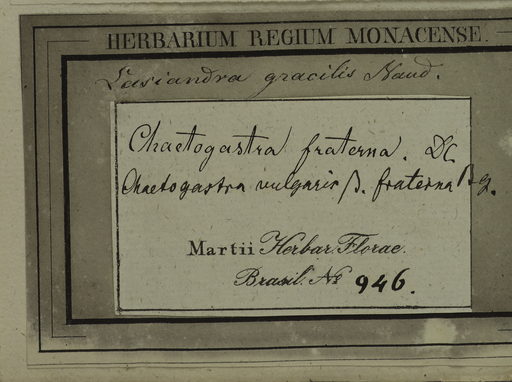 HERBARIUM REGIUM MONACENSE.
Lasiandra gracilis Naud.
Chaetogastra fraterna. DC
Chaetogastra vulgaris β. fraterna
Martii Herbar. Florae
Brasil. No 946.